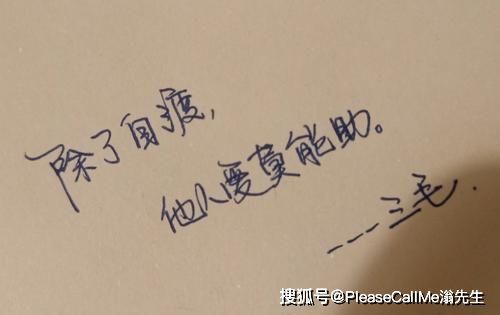 除了自渡，
他人爱莫能助。
---三毛.
搜狐号@PleaseCallMe滃先生